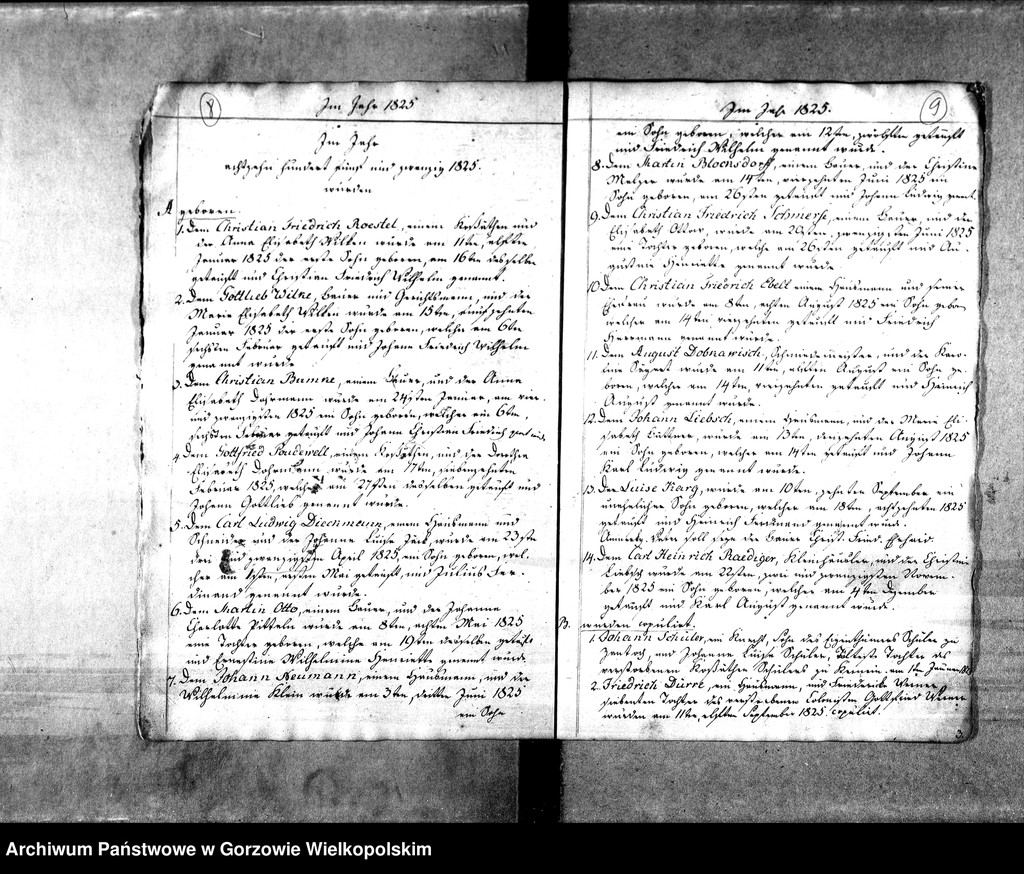 8
Im Jahr 1825
Im Jahr
achtzehn hundert fünf und zwanzig 1825.
wurden
A geboren.
1. Dem Christian Friedrich Roestel, einem Kossäthen und
der Anna Elisabeth Wilken wurde am 11ten, elften
Januar 1825 der erste Sohn geboren, am 16ten desselben
getauft und Christian Friedrich Wilhelm genannt.
2. Dem Gottlieb Wilke, Bauer und Gerichtsmann, und der
Marie Elisabeth Wilken wurde am 15ten, fünfzehnten
Januar 1825 der erste Sohn geboren, welcher am 6ten
sechsten Februar getauft und Johann Friedrich Wilhelm
genannt wurde.
3. Dem Christian Bumke, einem Bauer, und der Anna
Elisabeth Dohrmann wurde am 24sten Januar, am vier
und zwanzigsten 1825 ein Sohn geboren, welcher am 6ten,
sechsten Februar getauft und Johann Christian Friedrich
4. Dem Gottfried, einem Kossäthen, und der Dorothee
Elisabeth Dohrmann wurde am 17ten, siebenzehnten
Februar 1825, welcher am 27sten desselben getauft und
Johann Gottlieb genannt wurde.
5. Dem Carl Ludwig Dieckmann, einem Hausmann und
Schneider und der Johanne Luise Jäck, wurde am 23sten
drei und zwanzigsten April 1825, ein Sohn geboren, wel-
cher am 1sten, ersten Mai getauft, und Julius Fer-
dinand genannt wurde.
6. Dem Martin Otto, einem Bauer, und der Johanne
Charlotte Pitteln wurde am 8ten, achten Mai 1825
eine Tochter geboren, welche am 19ten desselben getauft
und Ernestine Wilhelmine Henriette genannt wurde.
7. Dem Johann Neumann, einem Hausmann, und der
Wilhelmine Klein wurde am 3ten, dritte Juni 1825
ein Sohn
9
Im Jahr 1825.
ein Sohn geboren, welcher am 12ten, zwölften getauft
und Friedrich Wilhelm genannt wurde.
8. Dem Martin Blocksdorff, einem Bauer, und der Christine
Melzer wurde am 14ten, vierzehnten Juni 1825 ein
Sohn geboren, am 26sten getauft und Johann Ludwig genannt.
9. Dem Christian Friedrich Schmerse, einem Bauer, und der
Elisabeth Otto, wurde am 20ten, zwanzigsten Juni 1825
eine Tochter geboren, welche am 26sten getauft und Au-
guste Henriette genannt wurde.
10. Dem Christian Friedrich Ebelt einem Hausmann und seiner
Ehefrau wurde am 8ten, achten August 1825 ein Sohn gebor.
welcher am 14ten, vierzehnten getauft und Friedrich
Herrmann genannt wurde.
11. Dem August Dobnawisch, Schmiedemeister, und der Karo-
line wurde am 11ten, elften August ein Sohn ge-
boren, welcher am 14ten, vierzehnten getauft und Heinrich
August genannt wurde.
12. Dem Johann Liebsch, einem Hausmann, und der Marie Eli-
sabeth Büttner, wurde am 13ten, dreizehnten August 1825
ein Sohn geboren, welcher am 14ten getauft und Johann
Karl Ludwig genannt wurde.
13. Der Luise Karg, wurde am 10ten, zehnten September ein
unehelicher Sohn geboren, welcher am 18ten, achtzehnten 1825
getauft und Heinrich Ferdinand genannt wurde.
Vater soll sein der Bauer Christ. Fried.
14. Dem Carl Heinrich Raediger, Kleinhäusler, und der Christine
Liebsch wurde am 22sten, zwei und zwanzigsten Novem-
ber 1825 ein Sohn geboren, welcher am 4ten Dezember
getauft und Karl August genannt wurde.
B. wurden copulirt.
1. Johann Schüler, ein Knecht, Sohn des Eigenthümers Schüler zu
Zantoch, und Johanne Luise Schüler, älteste Tochter des
verstorbenen Kossäthen Schülers zu am 1ten Januar
2. Friedrich Dürre, ein Hausmann, und Friederike Werner,
siebenten Tochter des verstorbenen Colonisten Gottfried Werner
wurden am 11ten, elften September 1825 copulirt.
Archiwum Państwowe w Gorzowie Wielkopolskim